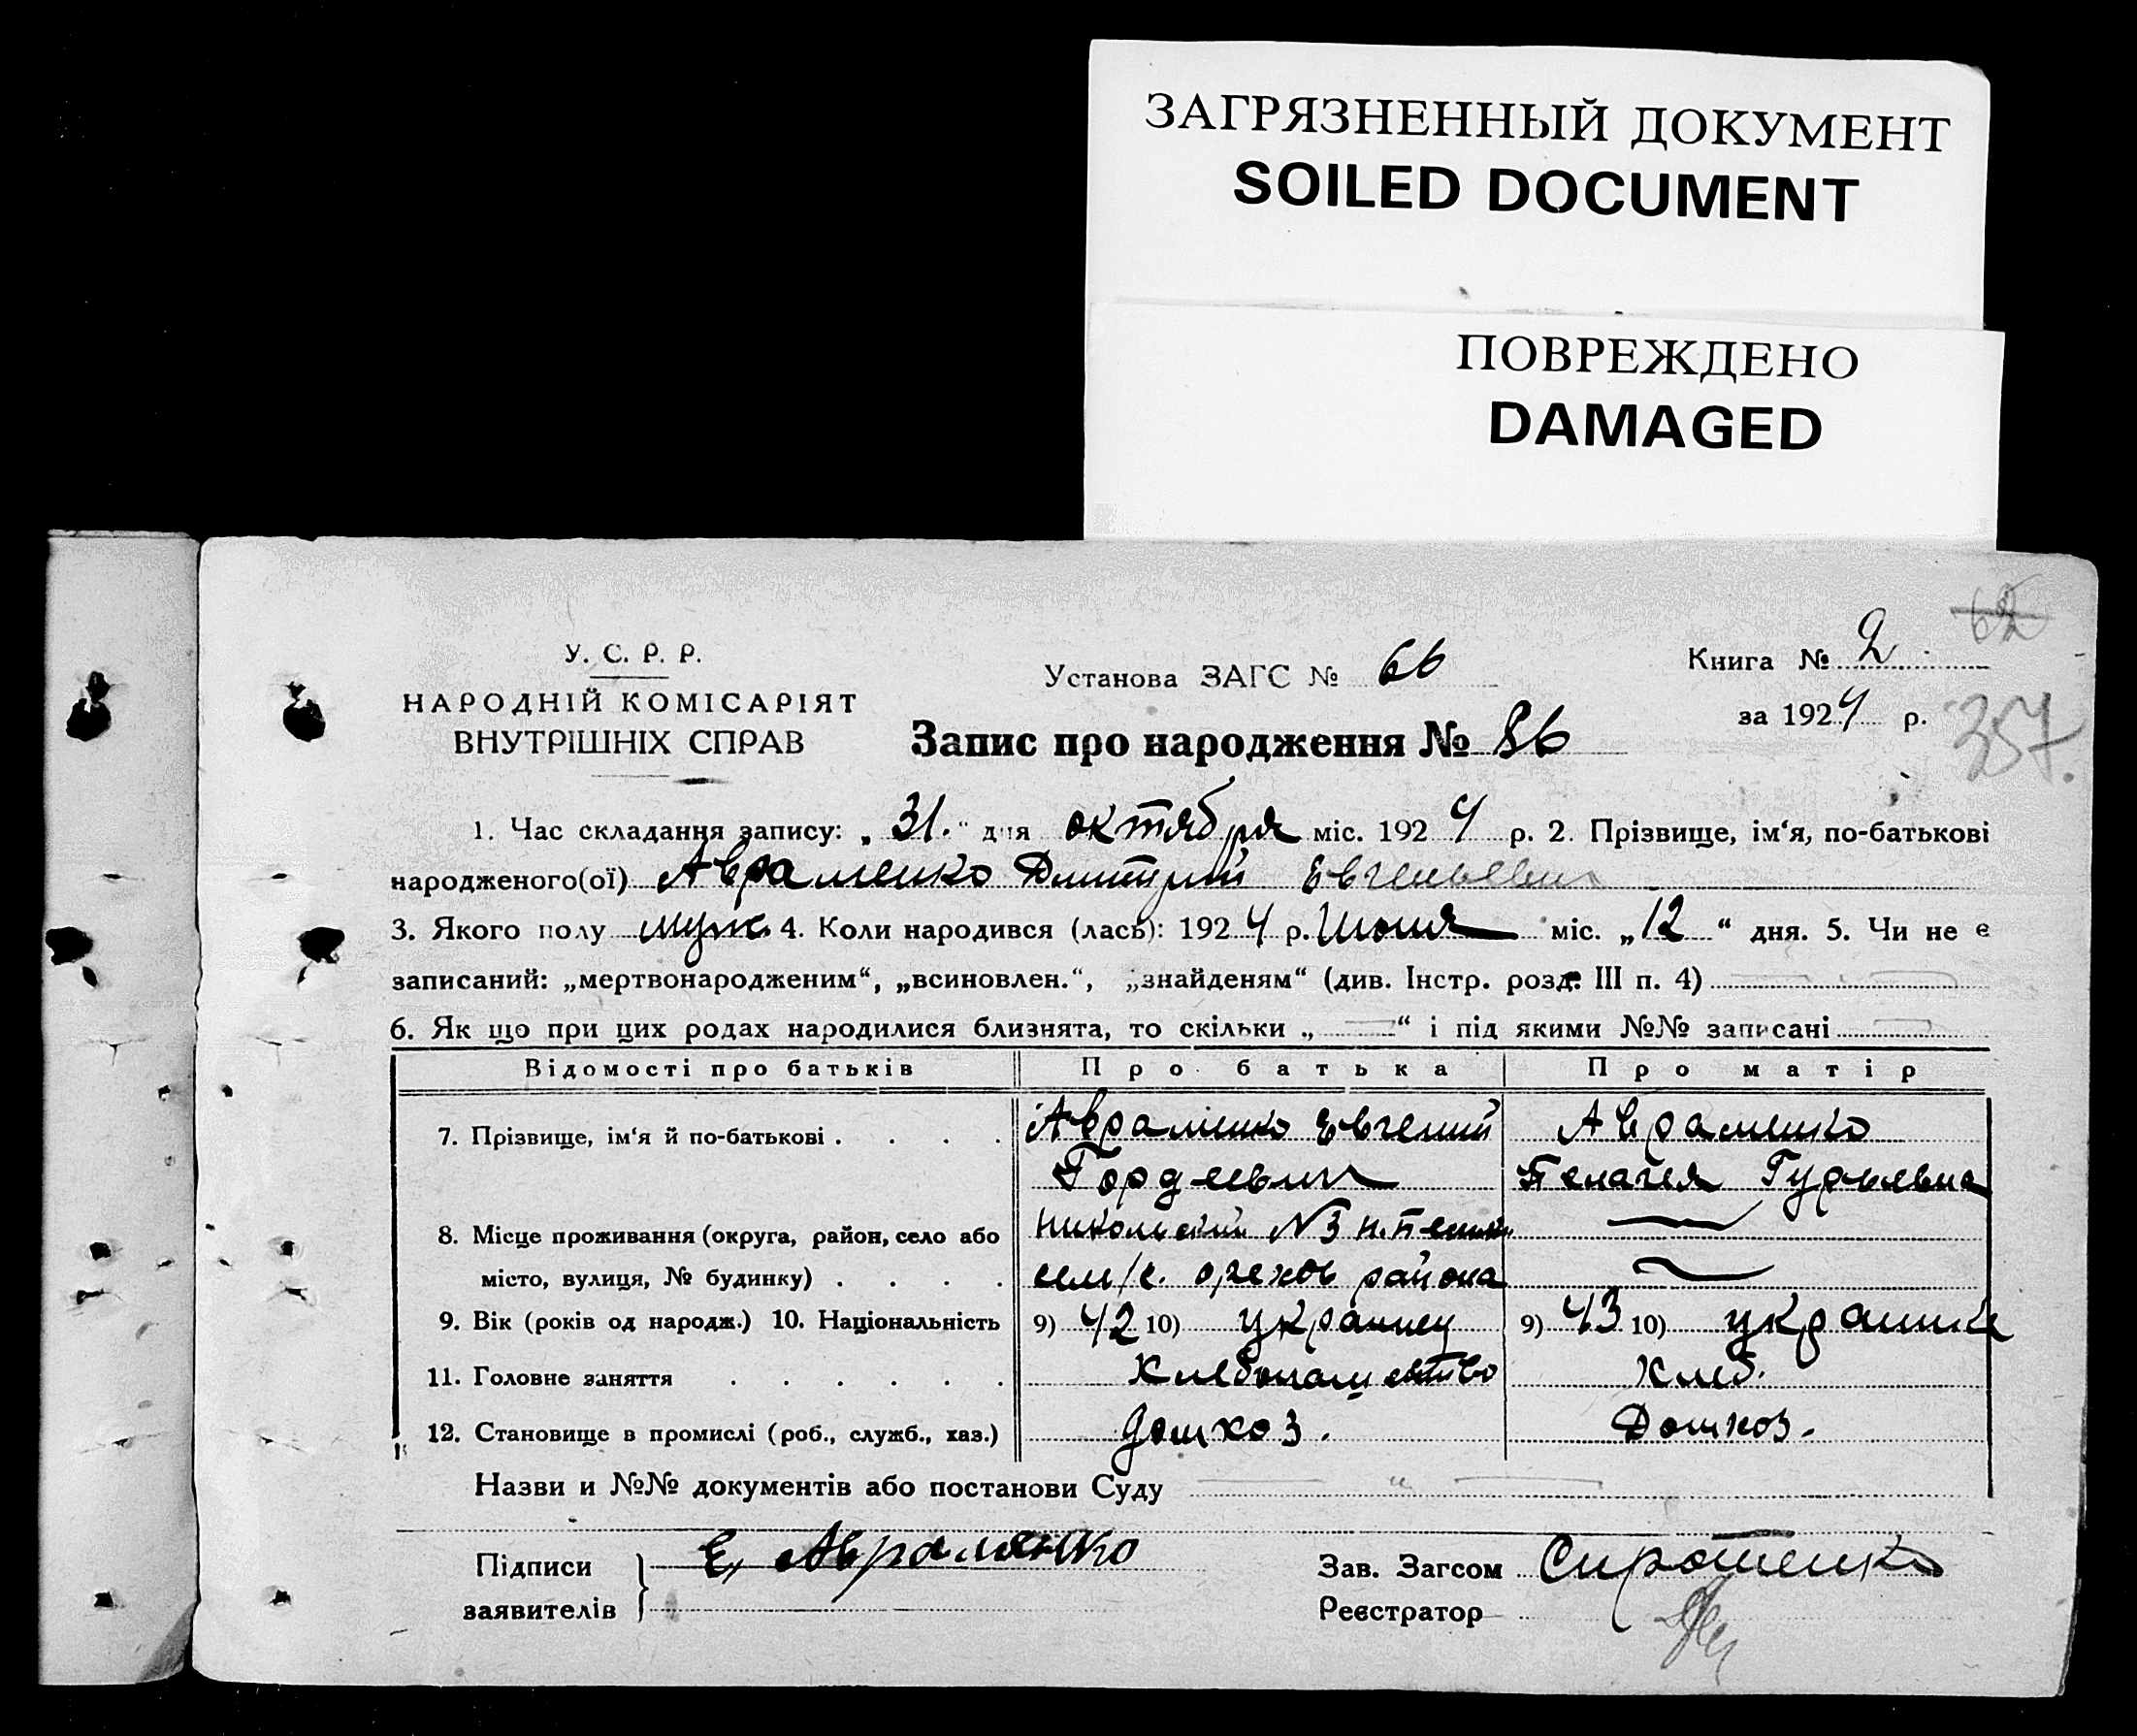 ЗАГРЯЗНЕННЫЙ ДОКУМЕНТ
SOILED DOCUMENT
ПОВРЕЖДЕНО
DAMAGED
62
У. С. Р. Р.
НАРОДНІЙ КОМІСАРІЯТ
ВНУТРІШНІХ СПРАВ
Установа ЗАГС № 66
Книга № 2
за 1924 р.
357.
Запис про народження № 86
1. Час складання запису: „31.“ дня октября міс. 1924 р. 2. Прізвище, ім‘я, по-батькові
народженого(ої) Авраменко Дмитрий Евгеньевич
3. Якого полу муж. 4. Коли народився (лась): 1924 р. Июня міс. „12“ дня. 5. Чи не є
записаний: „мертвонародженим“, „всиновлен.“, „знайденям“ (див. Інстр. розд. III п. 4)
6. Як що при цих родах народилися близнята, то скільки „ — “ і під якими №№ записані —
Відомості про батьків Про батька Про матір
7. Прізвище, ім‘я й по-батькові Авраменко Евгений Авраменко
Гордеевич Пелагея Гурьевна
8. Місце проживання (округа, район, село або Никольский №3
місто, вулиця, № будинку) орехов района
9. Вік (років од народж.) 10. Національність 9) 42 10) украинец 9) 43 10) украинка
11. Головне заняття Хлебопашество Хлеб.
12. Становище в промислі (роб., служб., хаз.) Домхоз. Домхоз.
Назви и №№ документів або постанови Суду — „ —
Підписи Е. Авраменко Зав. Загсом Сиротенко
заявителів Реєстратор